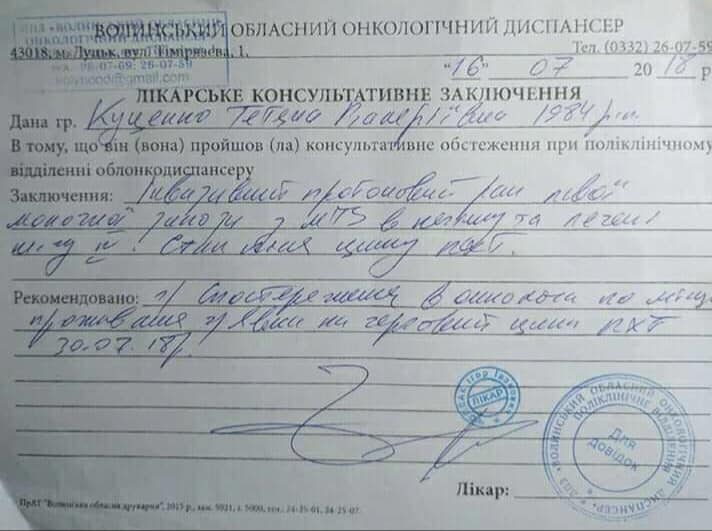 ДПЗ «ВОЛИНСЬКИЙ ОБЛАСНИЙ
ОНКОЛОГІЧНИЙ ДИСПАНСЕР»
26-07-69; 26-07-59
volynood@gmail.com
ВОЛИНСЬКИЙ ОБЛАСНИЙ ОНКОЛОГІЧНИЙ ДИСПАНСЕР
43018, м. Луцьк, вул. Тімірязєва, 1. Тел. (0332) 26-07-59
"16" 07 2018 р
ЛІКАРСЬКЕ КОНСУЛЬТАТИВНЕ ЗАКЛЮЧЕННЯ
Дана гр. Куценко Тетяна Валеріївна 1984 р.н.
В тому, що він (вона) пройшов (ла) консультативне обстеження при поліклінічному
відділенні облонкодиспансеру
Заключення: Інвазивний протоковий рак лівої
молочної залози з МТS в печінку та легені
Стан після циклу ПХТ.
Рекомендовано: 1) Спостереження в онколога по місцю
проживання 2) явки на черговий цикл ПХТ
30.07.18р.
ЛІКАР
ДПЗ «ВОЛИНСЬКИЙ ОБЛАСНИЙ ОНКОЛОГІЧНИЙ ДИСПАНСЕР»
ПОЛІКЛІНІЧНЕ ВІДДІЛЕННЯ
Для
довідок
Лікар:
ПрАТ "Волинська обласна друкарня", 2015 р., зам. 5021, т. 5000, тел.: 24-25-01, 24-25-07.